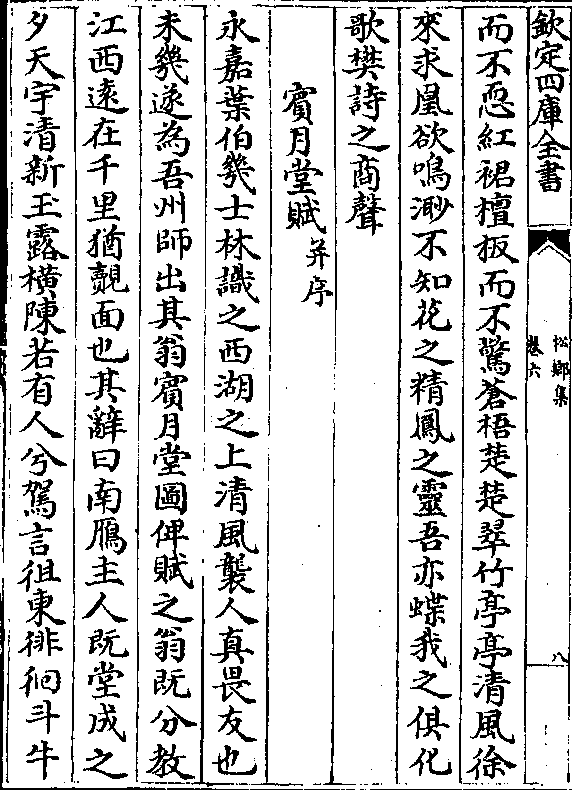 欽定四庫全書
松鄉集
卷六
八
而不恧紅裙檀板而不驚蒼梧楚楚翠竹亭亭清風徐
來求凰欲鳴渺不知花之精鳳之靈吾亦蝶我之俱化
歌樊詩之商聲
賓月堂賦并序
永嘉葉伯幾士林識之西湖之上清風襲人真畏友也
未幾遂為吾州師出其翁賓月堂圖俾賦之翁既分教
江西遠在千里猶覿面也其辭曰南鴈主人既堂成之
夕天宇清新玉露橫陳若有人兮駕言徂東徘徊斗牛